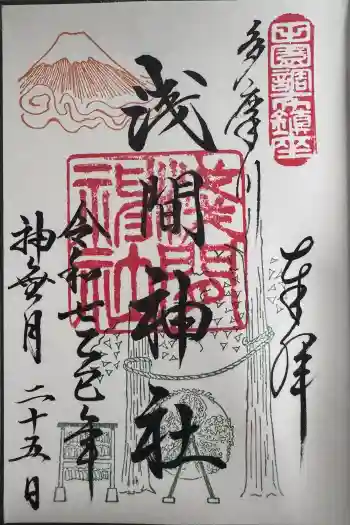 田園調布鎮座
奉拝
多摩川
浅間神社
浅間神社
令和七乙巳年
神無月二十五日